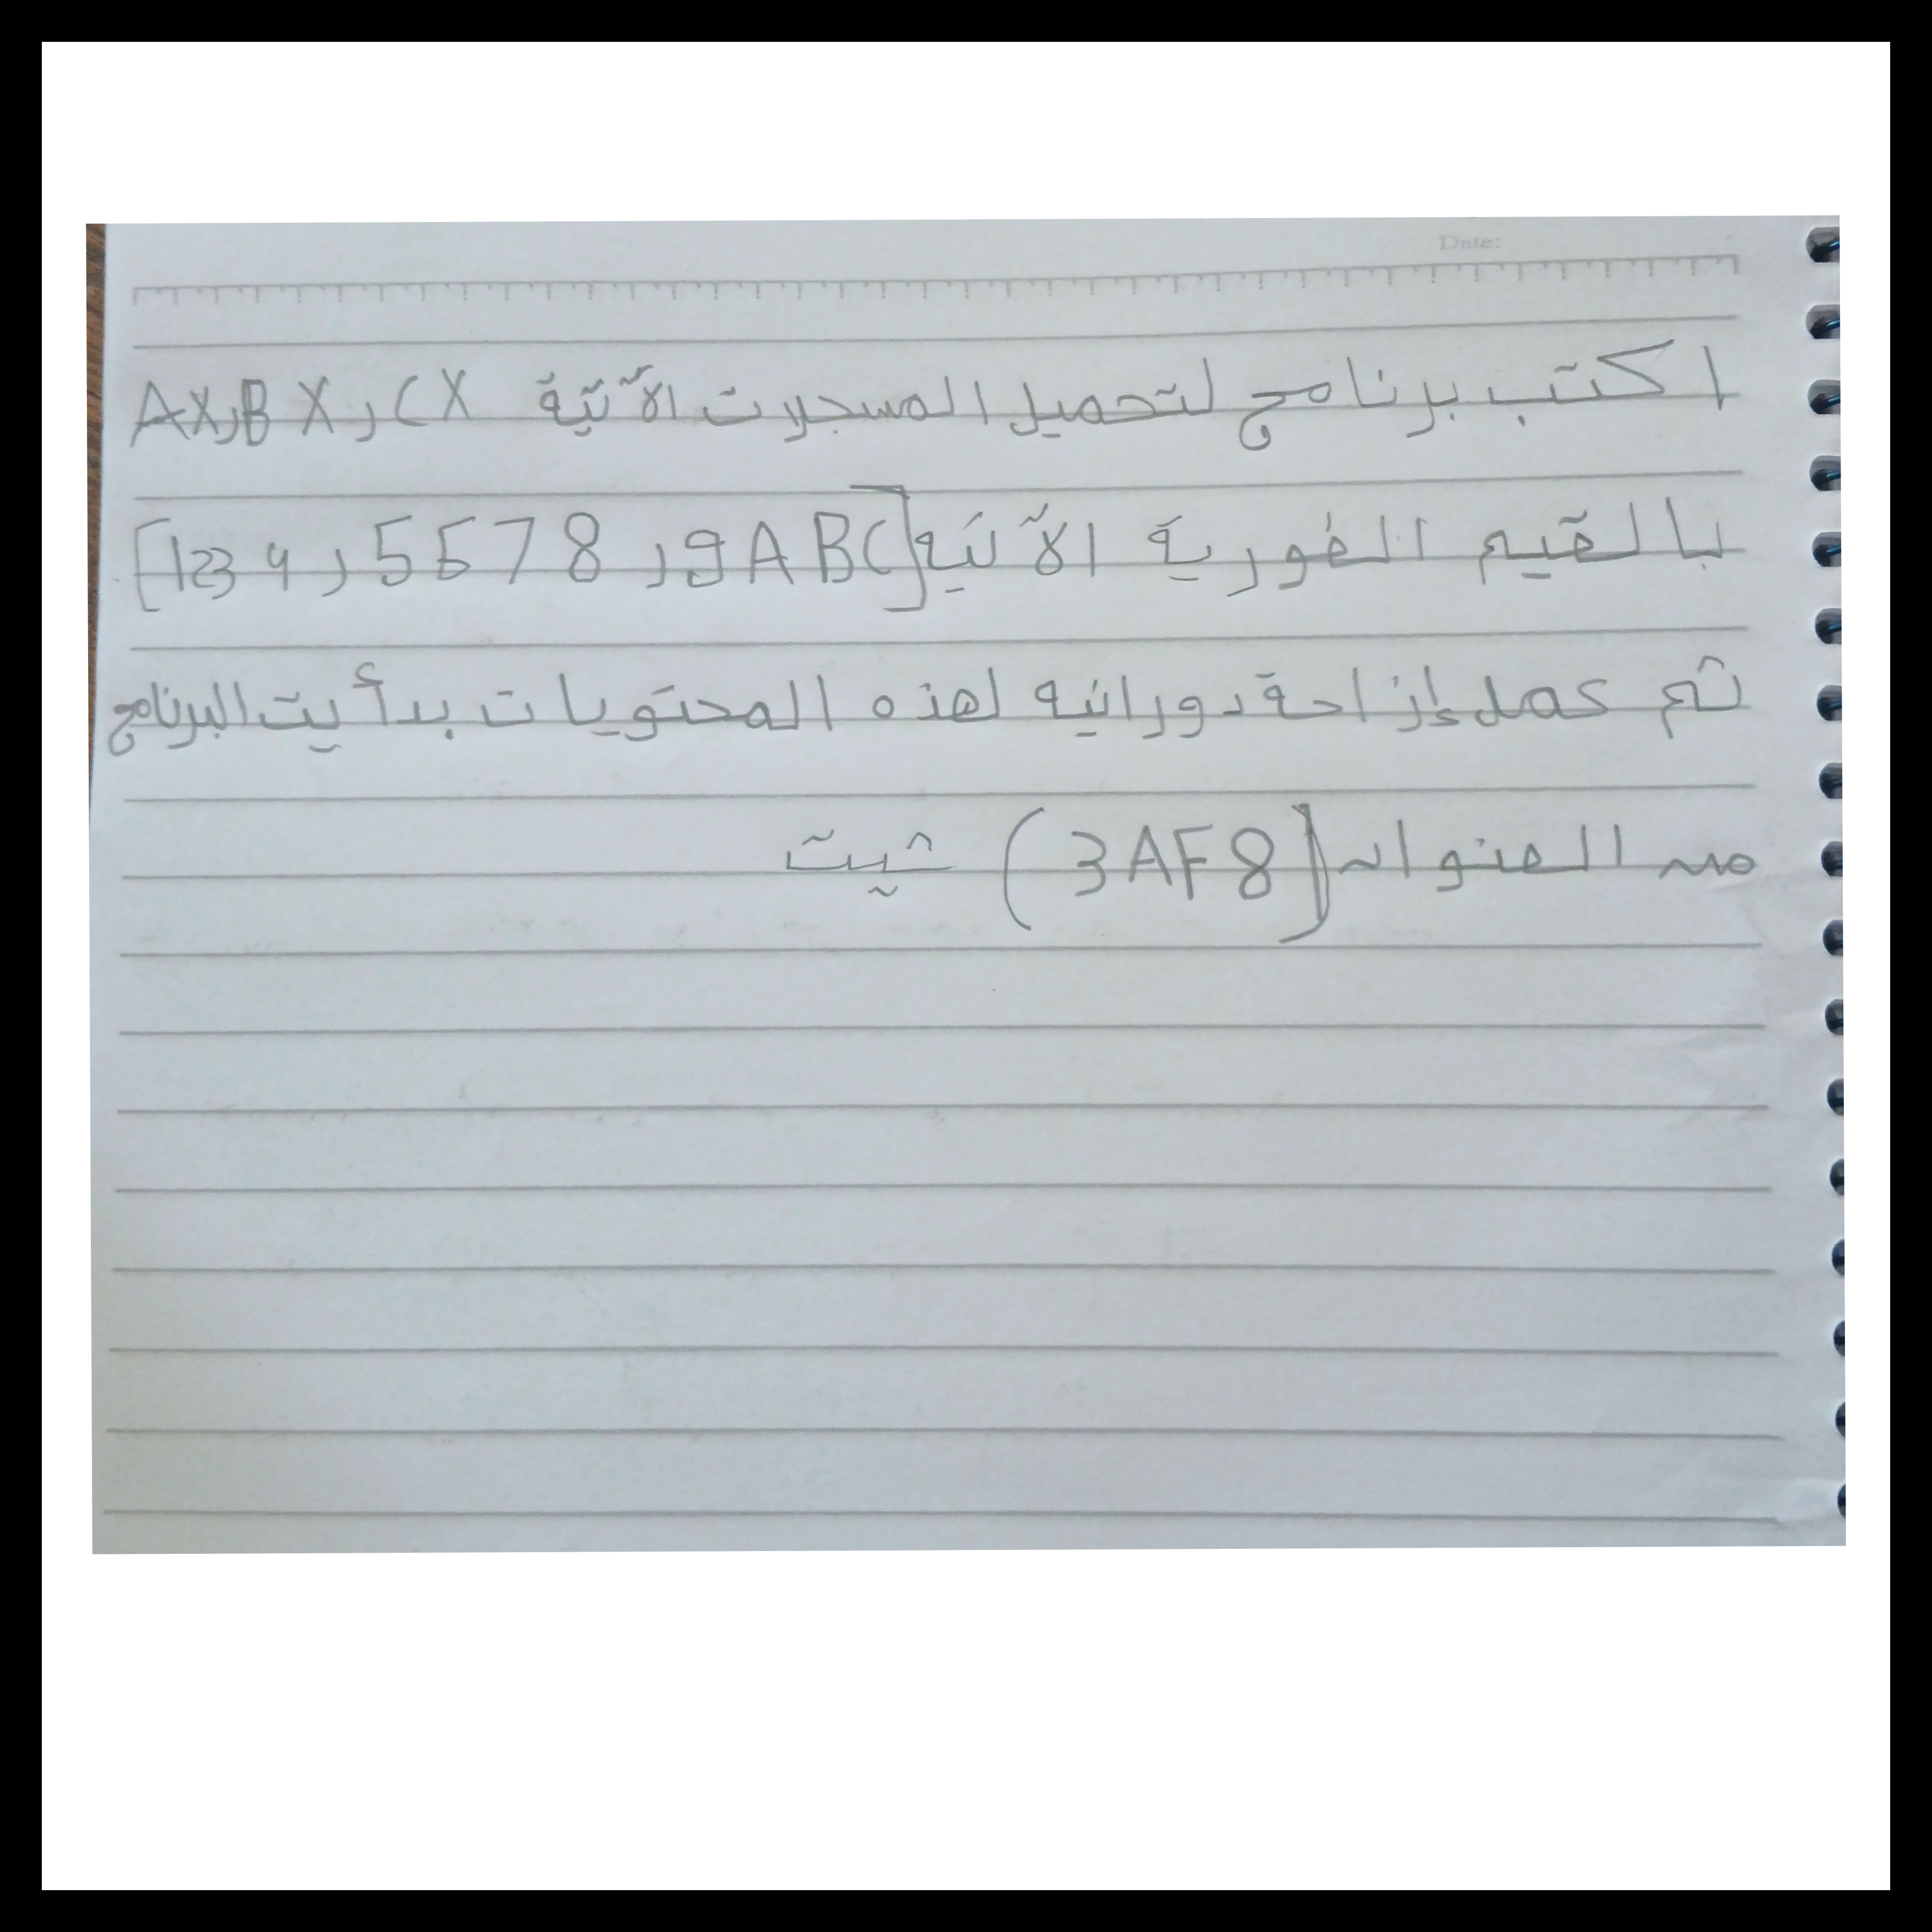 Date:
اكتب برنامج لتحميل المسجلات الآتية AX,BX,CX
بالقيم الفورية الآتيه [1234,5578,9ABC]
ثم عمل إزاحة دورانيه لهذه المحتويات بدأ يت البرنامج
من العنوان (3AF8) ثييت